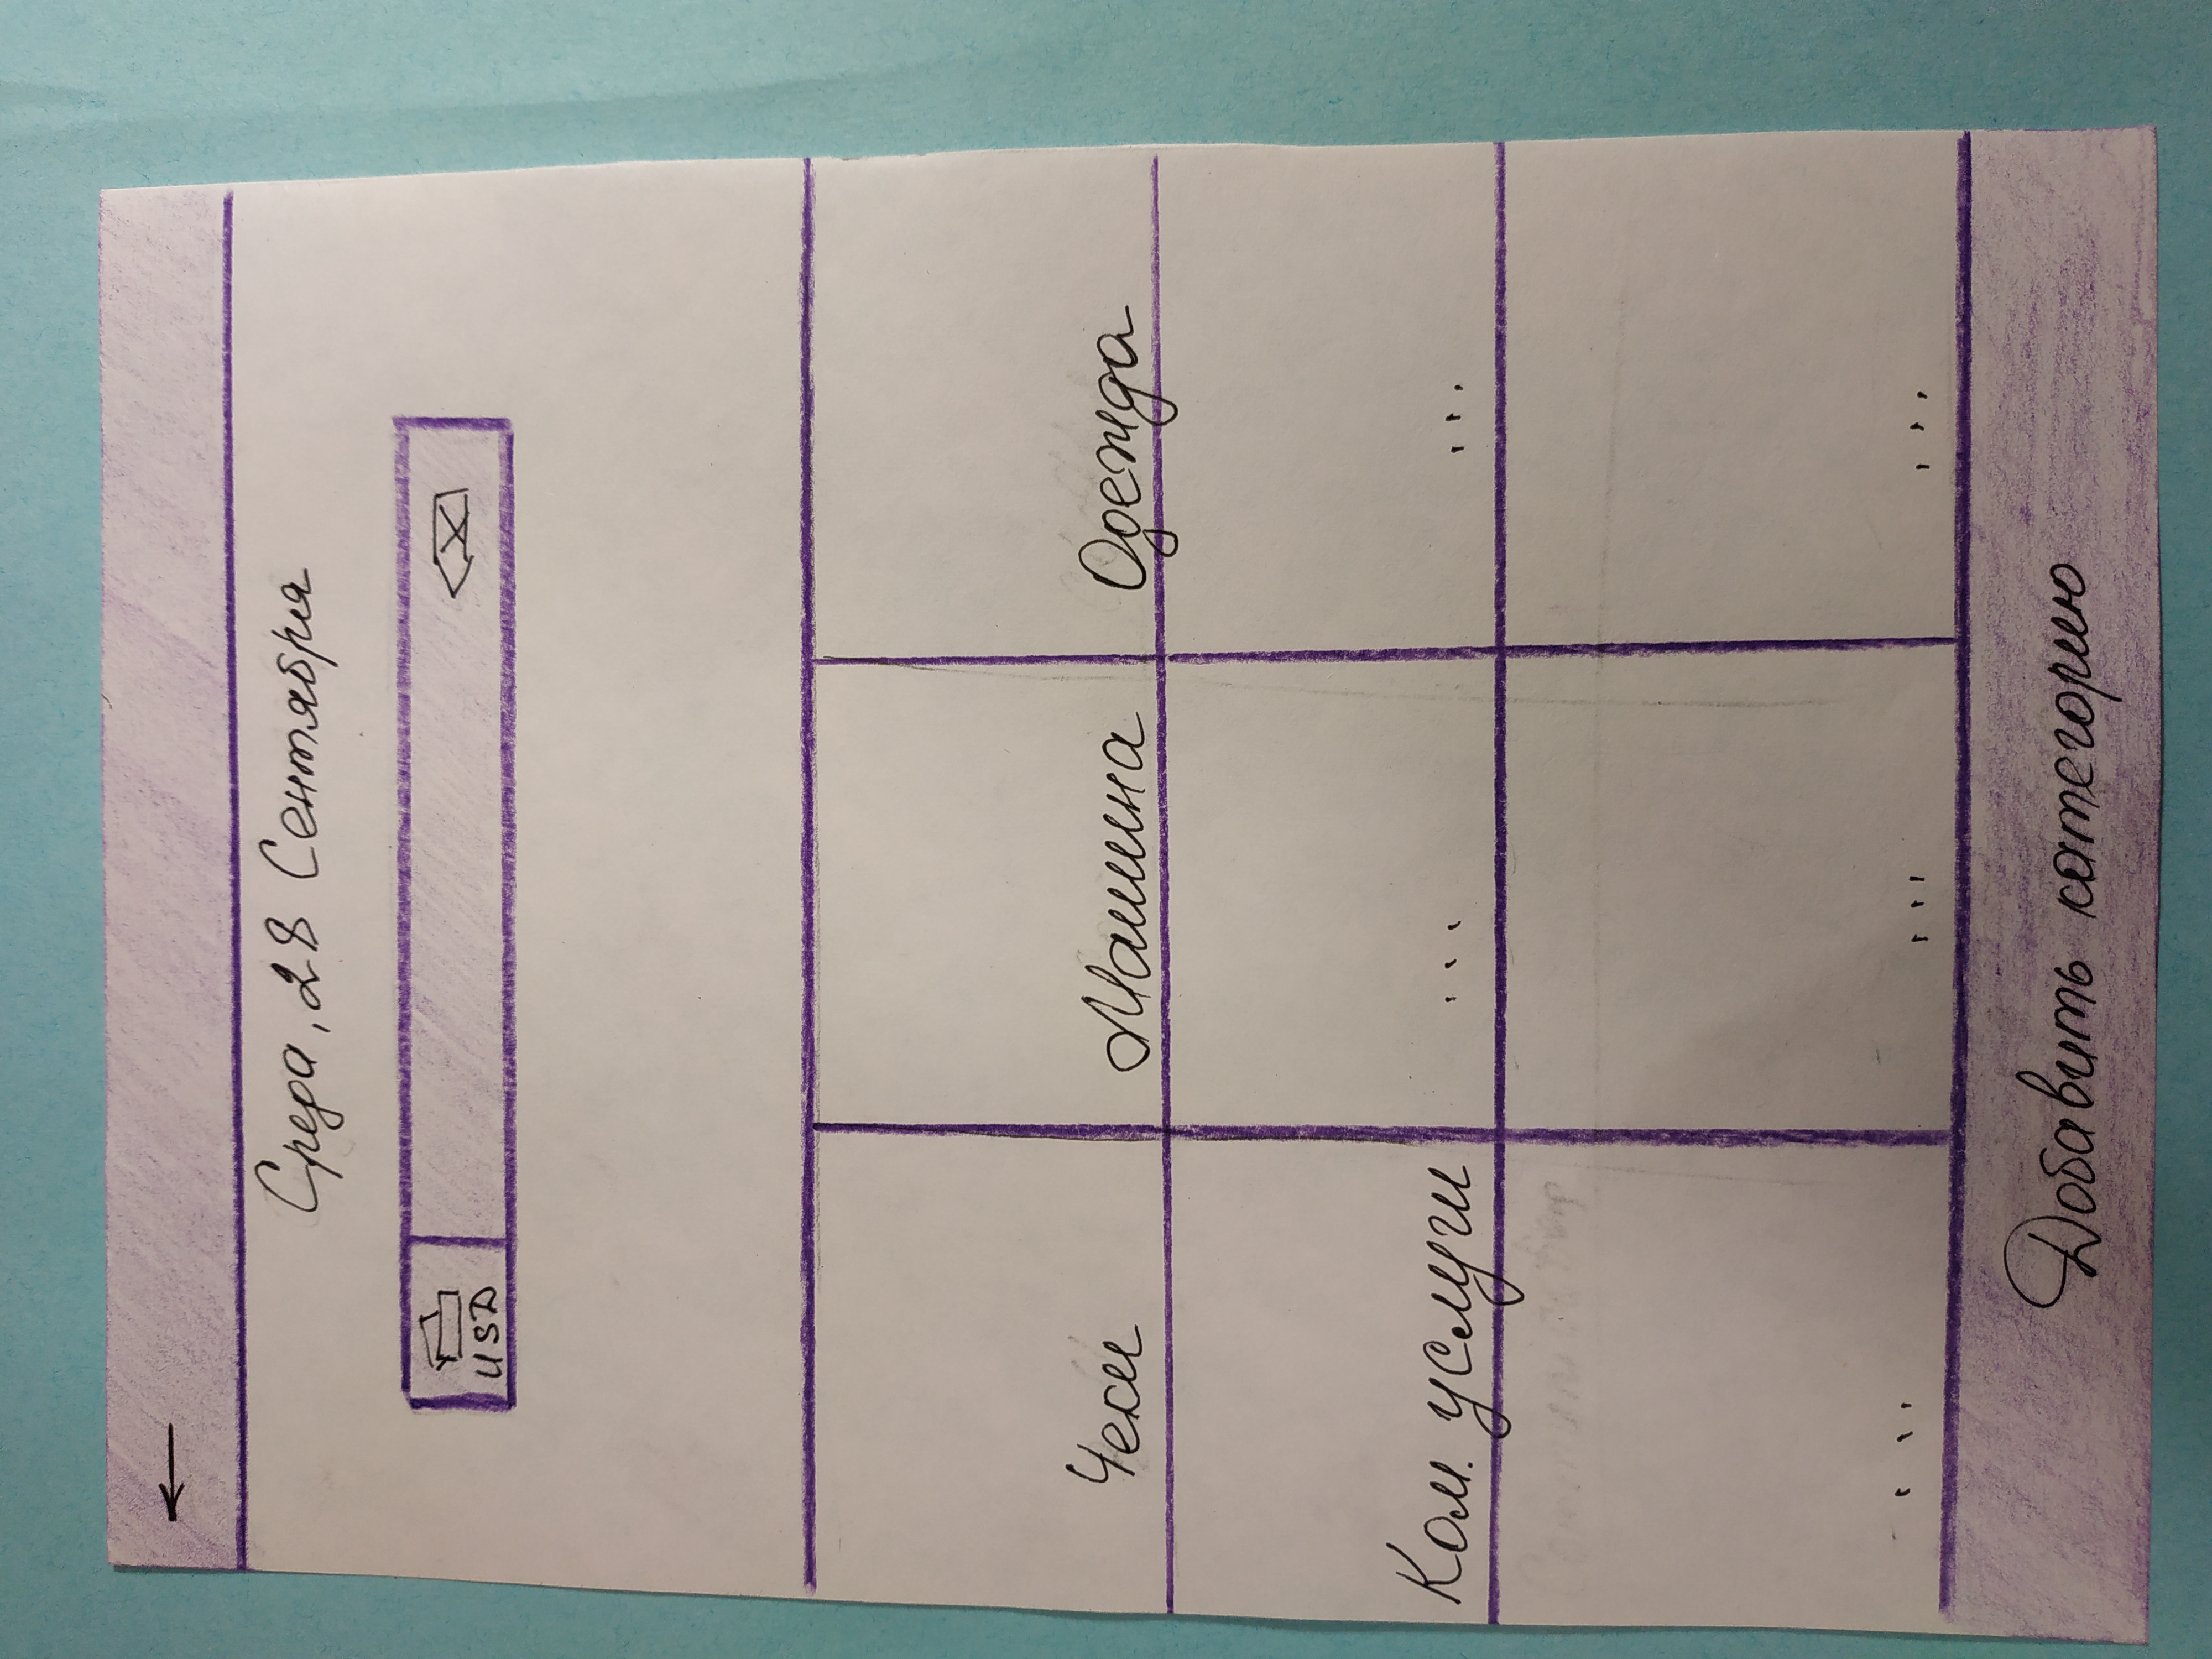 Среда, 28 Сентября
USD
Чеки
Машина
Одежда
Ком. услуги
...
...
...
...
...
Добавить категорию